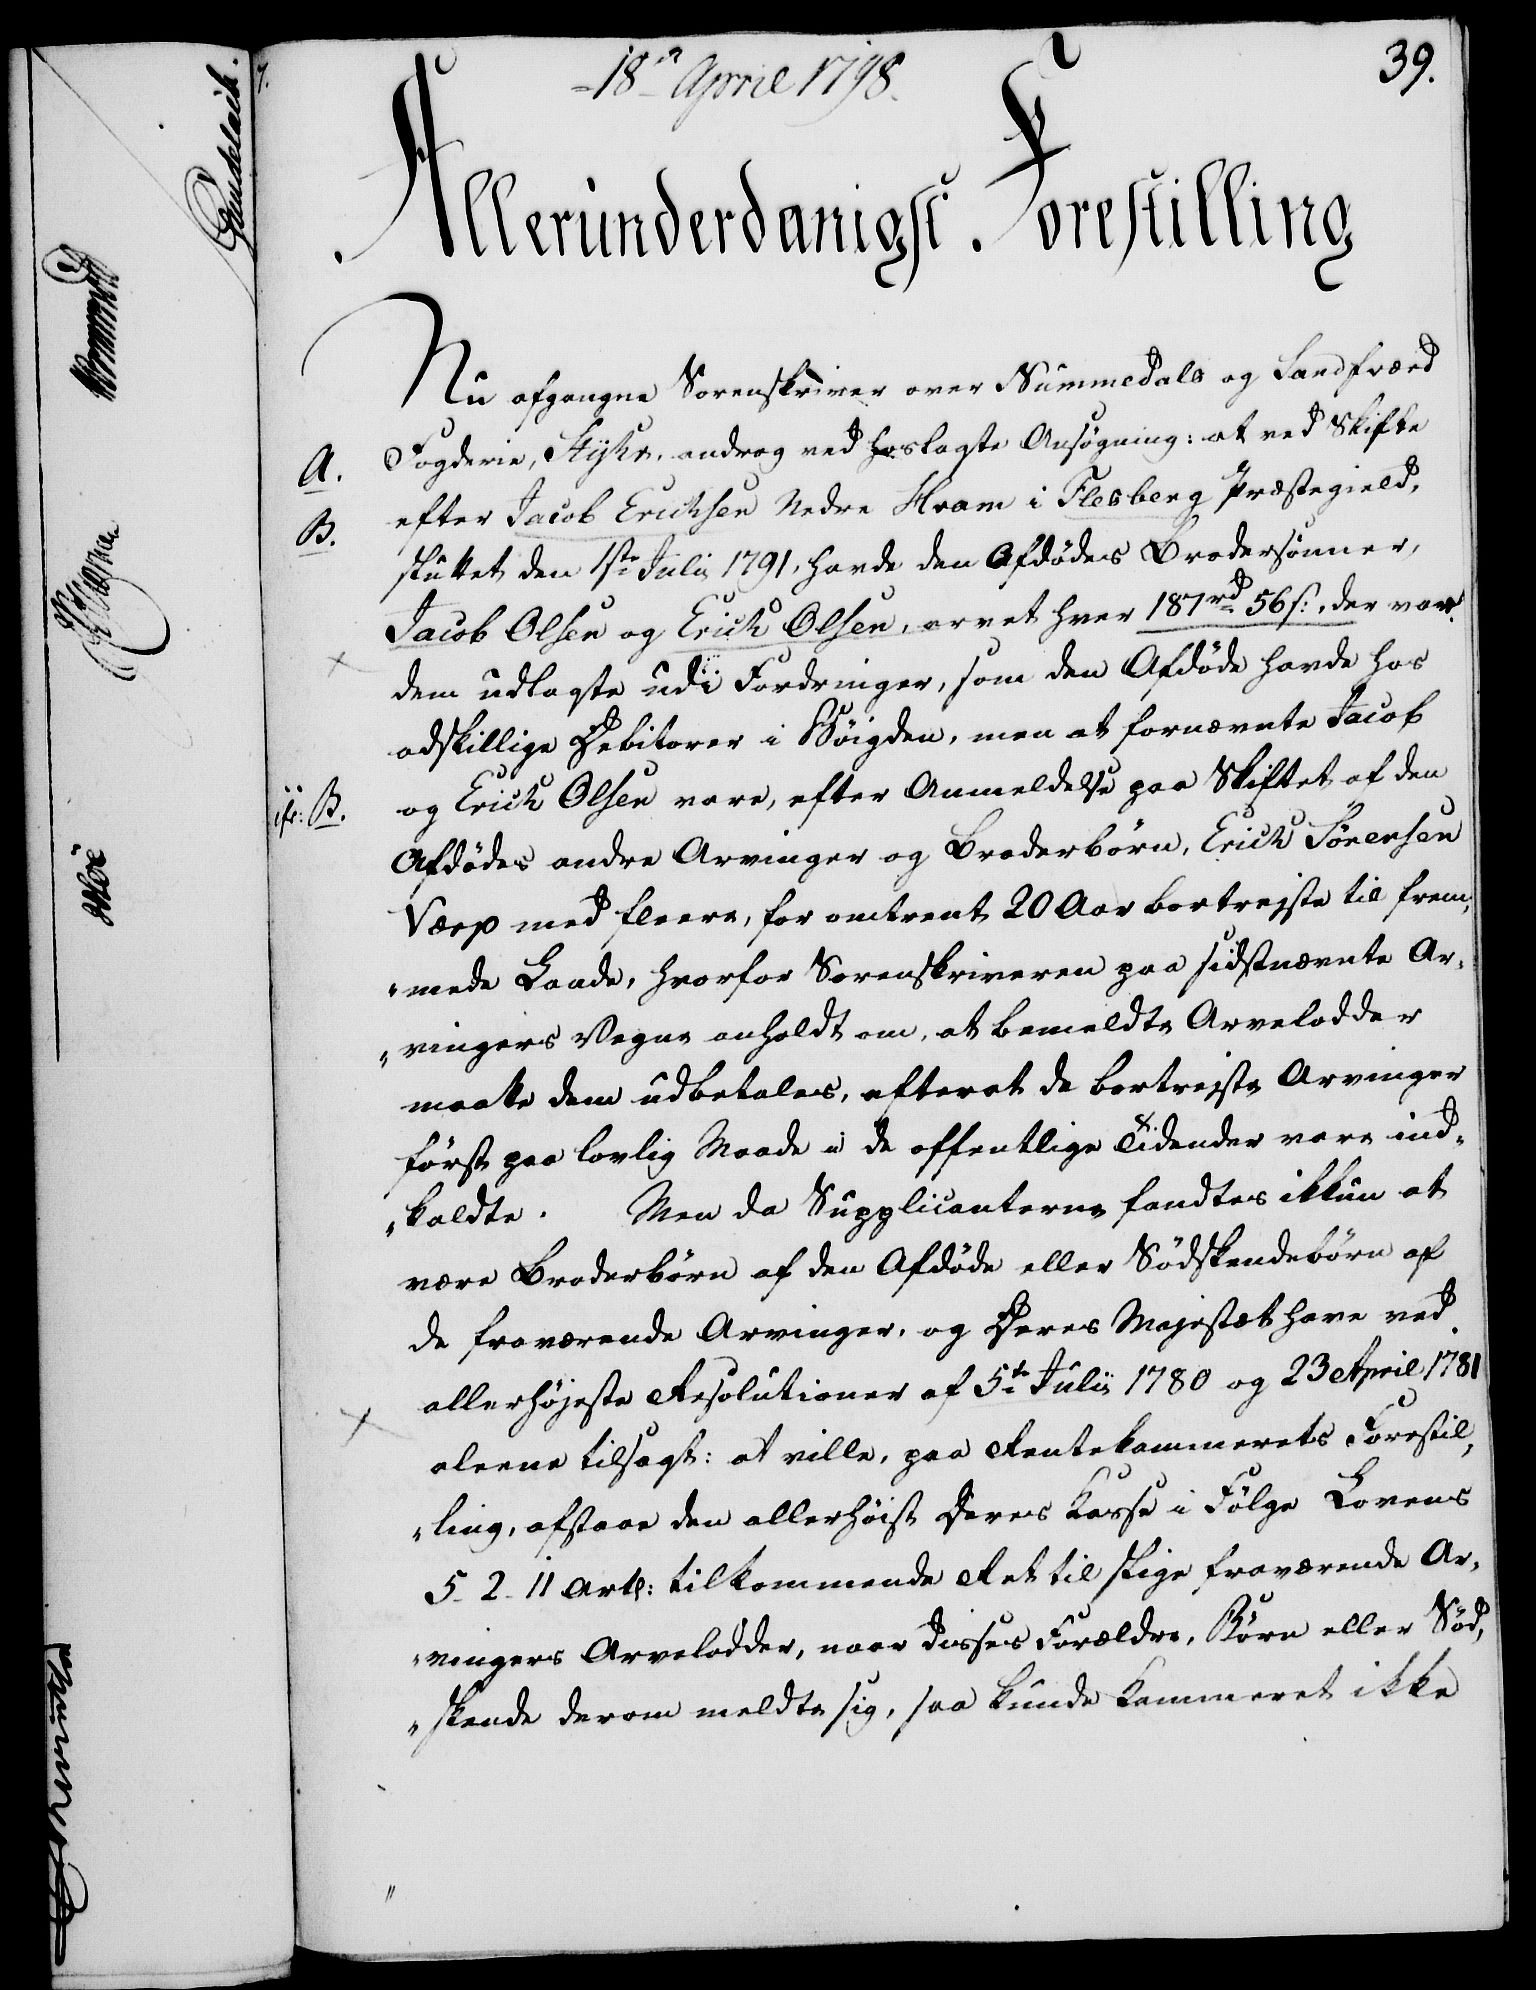 18de April 1798.
39.
Allerunderdanigst Forestilling
Nu afgangne Sorenskriver over Nummedals og Sandsværd
A. Fogderie, androg ved hoslagte Ansøgning: at ved Skifte
B. efter Jacob Erichsen Nedre Hvam i Flesberg Præstegield,
sluttet den 1ste Julii 1791, havde den Afdødes Brodersønner,
Jacob Olsen og Erich Olsen, arvet hver 187 rd 56 s:, der var
dem udlagte udi Fordringer, som den Afdøde havde hos
adskillige Debitorer i Bøigden, men at fornævnte Jacob
jfr: B. og Erich Olsen vare, efter Anmeldelse paa Skiftet af den
Afdødes andre Arvinger og Broderbørn, Erich Sørensen
Værp med fleere, for omtrent 20 Aar bortrejste til frem„
„mede Lande, hvorfor Sorenskriveren paa sidstnævnte Ar„
„vingers Vegne anholdt om, at bemeldte Arvelodder
maatte dem udbetales, efterat de bortrejste Arvinger
først paa lovlig Maade i de offentlige Tidender vare ind„
„kaldte. Men da Supplicanterne fandtes ikkun at
være Broderbørn af den Afdøde eller Sødskendebørn af
de fraværende Arvinger, og Deres Majestæt have ved
allerhøjeste Resolutioner af 5te Julii 1780 og 23 April 1781
aleene tilsagt: at ville, paa Rentekammerets Forestil„
„ling, afstaae den allerhøist Deres Kasse i Følge Lovens
5-2-11 Artl: tilkommende Ret til slige fraværende Ar„
„vingers Arvelodder, naar disses Forældre, Børn eller Sød„
„skende derom meldte sig, saa kunde Kammeret ikke